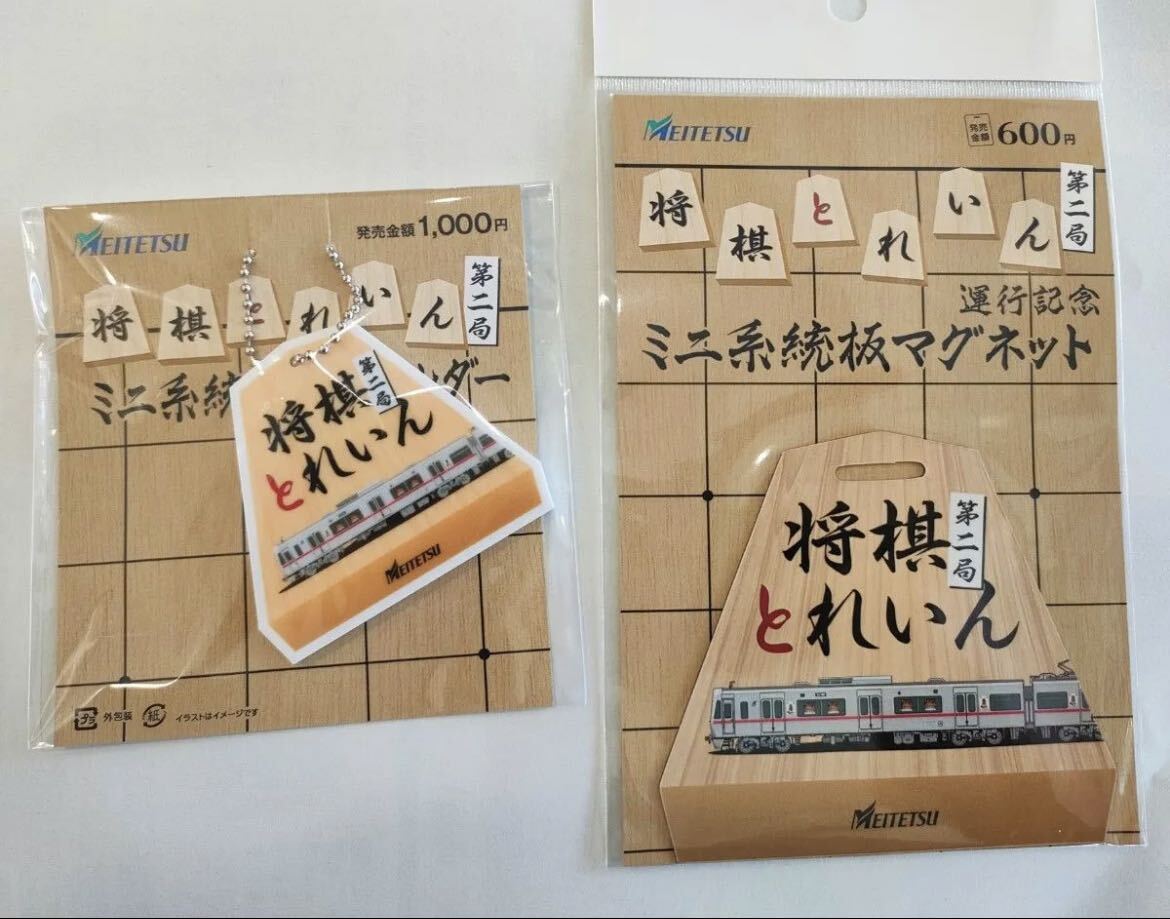 MEITETSU
発売金額1,000円
将棋とれいん
第二局
ミニ系統
ダー
第二局
将棋
とれいん
MEITETSU
プラ 外包装 紙 イラストはイメージです
MEITETSU
発売金額 600円
将棋とれいん
第二局
運行記念
ミニ系統板マグネット
将棋
第二局
とれいん
MEITETSU